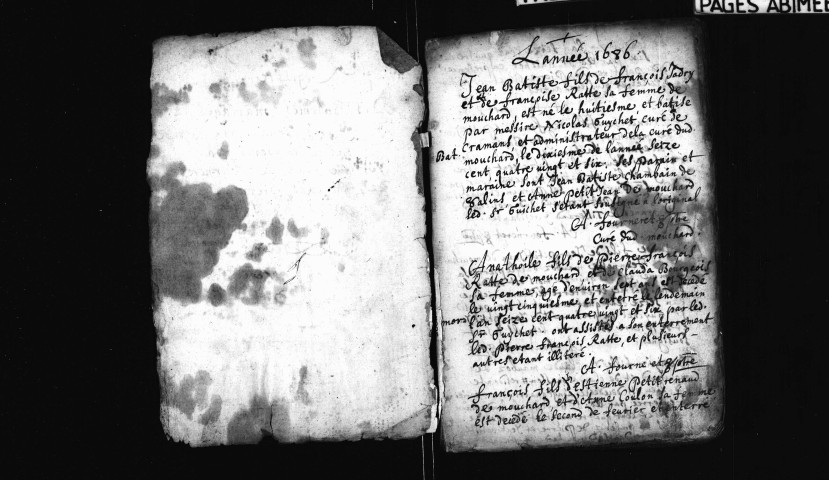 PAGES ABIMEE
L'année 1686
Jean Batiste fils de françois Jadry
et de françoise Ratte sa femme de
mouchard, est né le huitiesme et batisé
par messire Nicolas Guychet curé de
Cramans, et administrateur dela cure dud.
Bat. mouchard, le dixiesme de lannee seize
cent, quatre vingt et six. Ses parain et
maraine sont Jean Batiste chambain de
Salins et Anne petit Jean de mouchard
led. Sr Guichet sestant soussigné a loriginal
A. fourneret ptre
Curé dud mouchard.
Anathoile fils de pierre françois
Ratte de mouchard et de Clauda Bourgeois
sa femme, agé denviron sept ans est decedé
le vingt cinquiesme, et enterré le lendemain
mort l'an seize cent quatre vingt et six par led.
Sr Guychet. ont assistés a son enterrement
led. pierre françois Ratte, et plusieurs
autres etant illiteré.
A. fourneret ptre
françois fils d'Estienne Petit renaud
de mouchard et d'Anne Coulon sa femme
est decedé le second de fevrier et enterré